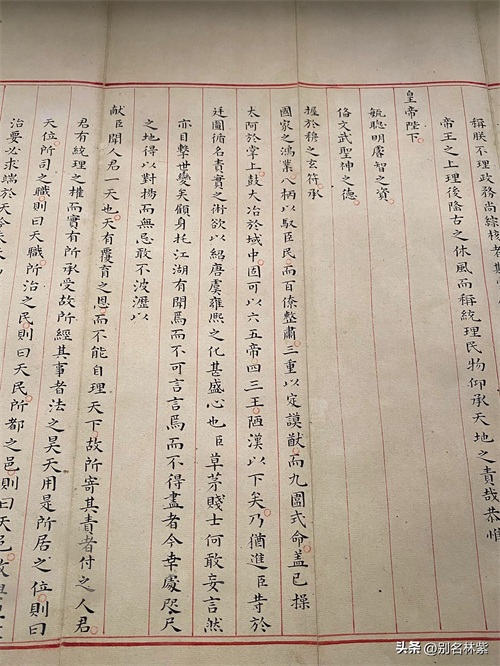 稱朕不理政務尚綜核者
帝王之上理後隆古之休風而稱統理民物仰承天地之責哉恭惟
皇帝陛下
毓聰明睿智之資
備文武聖神之德
握於穆之玄符承
國家之鴻業八柄以馭臣民而百僚整肅三重以定謨猷而九圍式命蓋已操
太阿於掌上鼓大冶於域中固可以六五帝四三王陋漢以下矣乃猶進臣等於
廷圖循名責實之術欲以紹唐虞雍熙之化甚盛心也臣草茅賤士何敢妄言然
亦目擊世變矣顧身托江湖有聞焉而不可言言焉而不得盡者今幸處咫尺
之地得以對揚而無忌敢不披瀝以
獻臣聞人君一天也天有覆育之恩而不能自理天下故所寄其責者付之人君
君有統理之權而實有所承受故所經其事者法之昊天用是所居之位則曰
天位所司之職則曰天職所治之民則曰天民所都之邑則曰天邑故興
治要必求端於天
头条 @别名林紫